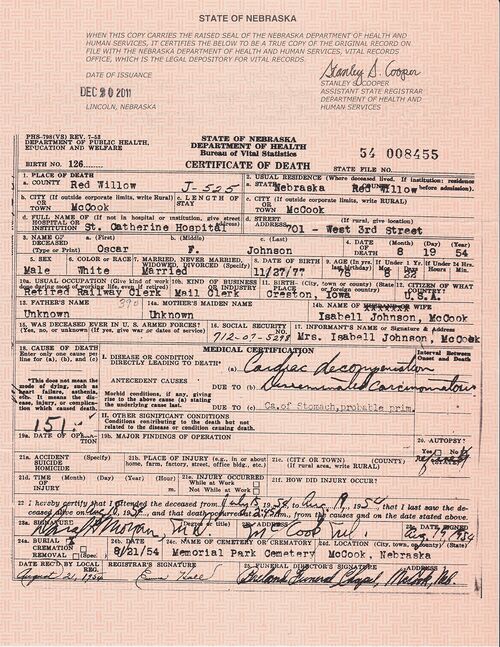 STATE OF NEBRASKA
WHEN THIS COPY CARRIES THE RAISED SEAL OF THE NEBRASKA DEPARTMENT OF HEALTH AND
HUMAN SERVICES, IT CERTIFIES THE BELOW TO BE A TRUE COPY OF THE ORIGINAL RECORD ON
FILE WITH THE NEBRASKA DEPARTMENT OF HEALTH AND HUMAN SERVICES, VITAL RECORDS
OFFICE, WHICH IS THE LEGAL DEPOSITORY FOR VITAL RECORDS.
DATE OF ISSUANCE
DEC 20 2011
LINCOLN, NEBRASKA
Stanley S. Cooper
STANLEY S. COOPER
ASSISTANT STATE REGISTRAR
DEPARTMENT OF HEALTH AND
HUMAN SERVICES
PHS-798(VS) REV. 7-53
DEPARTMENT OF PUBLIC HEALTH,
EDUCATION AND WELFARE
STATE OF NEBRASKA
DEPARTMENT OF HEALTH
Bureau of Vital Statistics
CERTIFICATE OF DEATH
54 008455
BIRTH NO. 126
STATE FILE NO.
1. PLACE OF DEATH
a. COUNTY Red Willow J-525
2. USUAL RESIDENCE (Where deceased lived. If institution: residence before admission).
a. STATE Nebraska COUNTY Red Willow
b. CITY (If outside corporate limits, write Rural) OR TOWN McCook
c. LENGTH OF STAY
c. CITY (If outside corporate limits, write RURAL) OR TOWN McCook
d. FULL NAME OF (If not in hospital or institution, give street address or location) HOSPITAL OR INSTITUTION St. Catherine Hospital
d. STREET ADDRESS (If rural, give location) 701 - West 3rd Street
3. NAME OF DECEASED a. (First) b. (Middle) c. (Last)
Oscar F. Johnson
4. DATE OF DEATH (Month) (Day) (Year)
8 19 54
5. SEX Male
6. COLOR OR RACE White
7. MARRIED, NEVER MARRIED, WIDOWED, DIVORCED (Specify) Married
8. DATE OF BIRTH 11/27/77
9. AGE (In yrs. last birthday) 76 If Under 1 Yr. If Under 24 Hrs.
10a. USUAL OCCUPATION (Give kind of work done during most of working life, even if retired) Retired Railway Clerk
10b. KIND OF BUSINESS OR INDUSTRY Mail Clerk
11. BIRTH-PLACE (City, town or county) (State or foreign country) Creston, Iowa
12. CITIZEN OF WHAT COUNTRY? U.S.A.
13. FATHER'S NAME Unknown
14a. MOTHER'S MAIDEN NAME Unknown
14b. NAME OF WIFE Isabell Johnson, McCook
15. WAS DECEASED EVER IN U. S. ARMED FORCES? (Yes, no, or unknown) (If yes, give war or dates of service)
16. SOCIAL SECURITY 712-07-5298
17. INFORMANT'S NAME or Signature & Address Mrs. Isabell Johnson, McCook
18. CAUSE OF DEATH
Enter only one cause per line for (a), (b), and (c)
MEDICAL CERTIFICATION
Interval Between Onset and Death
I. DISEASE OR CONDITION DIRECTLY LEADING TO DEATH* (a) Cardiac decompensation
*This does not mean the mode of dying, such as heart failure, asthenia, etc. It means the disease, injury, or complication which caused death.
ANTECEDENT CAUSES
Morbid conditions, if any, giving rise to the above cause (a) stating the underlying cause last.
DUE TO (b) Disseminated Carcinomatous
DUE TO (c) Ca. of Stomach, probable prim.
151
II. OTHER SIGNIFICANT CONDITIONS
Conditions contributing to the death but not related to the disease or condition causing death.
19a. DATE OF OPERATION
19b. MAJOR FINDINGS OF OPERATION
20. AUTOPSY?
Yes No
21a. ACCIDENT SUICIDE HOMICIDE (Specify)
21b. PLACE OF INJURY (e.g., in or about home, farm, factory, street, office bldg., etc.)
21c. (CITY OR TOWN) (COUNTY) (STATE)
(If rural area, write RURAL)
21d. TIME OF INJURY (Month) (Day) (Year) (Hour)
21e. INJURY OCCURRED
While at Work Not While at Work
21f. HOW DID INJURY OCCUR?
22. I hereby certify that I attended the deceased from 1954, to Aug 19, 1954, that I last saw the deceased alive on Aug. 18, 19 and that death occurred at from the causes and on the date stated above.
23a. SIGNATURE (Degree or title) M.D. ADDRESS McCook Neb. 23c. DATE SIGNED Aug. 19, 1954
24a. BURIAL CREMATION REMOVAL (Spec
24b. DATE 8/21/54
24c. NAME OF CEMETERY OR CREMATORY Memorial Park Cemetery
24d. LOCATION (City, town, or county) (State) McCook, Nebraska
DATE REC'D BY LOCAL REG. August 21, 1954
REGISTRAR'S SIGNATURE
25. FUNERAL DIRECTOR'S SIGNATURE ADDRESS
Funeral Chapel, McCook, Neb.